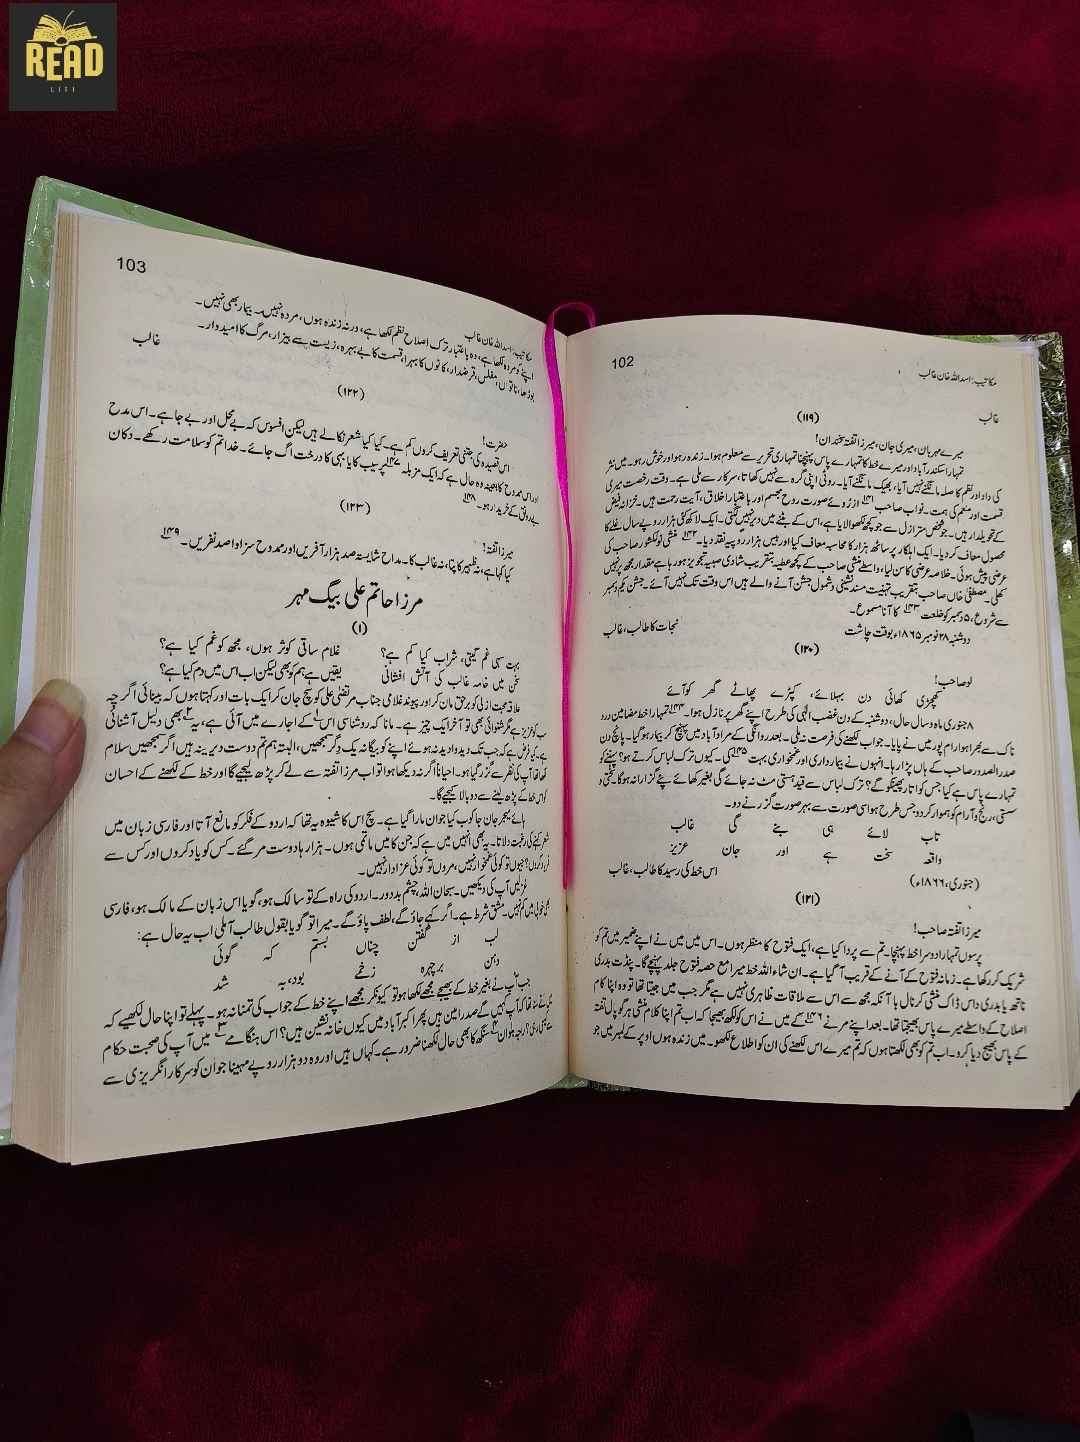 READ
LITI
102
مکاتیب: اسد اللہ خان غالب
غالب
(۱۱۹)
میرے مہربان، میری جان، میرزا تفتہ سخندان!
تمہارا سکندر آباد اور میرے خط کا تمہارے پاس پہنچنا تمہاری تحریر سے معلوم ہوا۔ زندہ رہو اور خوش رہو۔ میں نثر
کی داد اور نظم کا صلہ مانگنے نہیں آیا، بھیک مانگنے آیا۔ روٹی اپنی گرہ سے نہیں کھاتا، سرکار سے ملی ہے۔ وقت رخصت میری
قسمت اور منعم کی ہمت۔ نواب صاحب ۱۴۱ ازروئے صورت روح مجسم اور باعتبار اخلاق، آیت رحمت ہیں۔ خزانہ فیض
کے تحویلدار ہیں۔ جو شخص متر ازل سے جو کچھ لکھوا لایا ہے، اس کے بٹنے میں دیر نہیں لگتی۔ ایک لاکھ کئی ہزار روپے سال غلے کا
محصول معاف کر دیا۔ ایک اہلکار پر ساٹھ ہزار کا محاسبہ معاف کیا اور بیس ہزار روپیہ نقد دیا۔ ۱۴۲ منشی نولکشور صاحب کی
عرضی پیش ہوئی۔ خلاصہ عرضی کا سن لیا، واسطے منشی صاحب کے کچھ عطیہ بتقریب شادی صبیہ تجویز ہو رہا ہے مقدار مجھ پر نہیں
کھلی۔ مصطفیٰ خاں صاحب بتقریب تہنیت مسند نشینی و شمول جشن آنے والے ہیں اس وقت تک نہیں آئے۔ جشن یکم دسمبر
سے شروع، ۵ دسمبر کو خلعت ۱۴۳ کا آنا مسموع۔
دو شنبہ ۲۸ نومبر ۱۸۶۵ء بوقت چاشت نجات کا طالب، غالب
(۱۲۰)
لو صاحب!
کھچڑی کھائی دن بہلائے، کپڑے پھاٹے گھر کو آئے
۸ جنوری ماہ و سال حال، دو شنبہ کے دن غضب الٰہی کی طرح اپنے گھر پر نازل ہوا۔ ۱۴۴ تمہارا خط مضامین درد
ناک سے بھرا ہوا رام پور میں نے پایا۔ جواب لکھنے کی فرصت نہ ملی۔ بعد روانگی کے مراد آباد میں پہنچ کر بیمار ہو گیا۔ پانچ دن
صدر الصدور صاحب کے ہاں پڑا رہا۔ انہوں نے بیمارداری اور غمخواری بہت ۱۴۵ کی۔ کیوں ترک لباس کرتے ہو؟ پہننے کو
تمہارے پاس ہے کیا جس کو اتار پھینکو گے؟ ترک لباس سے قید ہستی مٹ نہ جائے گی بغیر کھائے پئے گزارا نہ ہوگا۔ سختی و
سستی، رنج و آرام کو ہموار کر دو جس طرح ہو اسی صورت سے بہر صورت گزرنے دو۔
تاب لائے ہی بنے گی غالب
واقعہ سخت ہے اور جان عزیز
اس خط کی رسید کا طالب، غالب
(جنوری، ۱۸۶۶ء)
(۱۲۱)
میرزا تفتہ صاحب!
پرسوں تمہارا دوسرا خط پہنچا۔ تم سے پردا کیا ہے، ایک فتوح کا منتظر ہوں۔ اس میں میں نے اپنے ضمیر میں تم کو
شریک کر رکھا ہے۔ زمانہ فتوح کے آنے کے قریب آ گیا ہے۔ ان شاء اللہ خط میرا مع حصہ فتوح جلد پہنچے گا۔ پنڈت بدری
ناتھ یا بدری داس ڈاک منشی کرنال با آنکہ مجھ سے اس سے ملاقات ظاہری نہیں ہے مگر جب میں جیتا تھا تو وہ اپنا کلام
اصلاح کے واسطے میرے پاس بھیجتا تھا۔ بعد اپنے مرنے ۱۴۶ کے میں نے اس کو لکھ بھیجا کہ اب تم اپنا کلام منشی ہر گوپال تفتہ
کے پاس بھیج دیا کرو۔ اب تم کو بھی لکھتا ہوں کہ تم میرے اس لکھنے کی ان کو اطلاع لکھو۔ میں زندہ ہوں اوپر کے لمبر میں جو
103
مکاتیب: اسد اللہ خان غالب
اپنے کو مردہ لکھا ہے، وہ باعتبار ترک اصلاح نظم لکھا ہے، ورنہ زندہ ہوں، مردہ نہیں۔ بیمار بھی نہیں۔
بوڑھا، ناتواں، مفلس، قرضدار، کانوں کا بہرا، قسمت کا بے بہرہ، زیست سے بیزار، مرگ کا امیدوار۔
غالب
(۱۲۲)
حضرت!
اس قصیدہ کی جتنی تعریف کروں کم ہے۔ کیا کیا شعر نکالے ہیں لیکن افسوس کہ بے محل اور بے جا ہے۔ اس مدح
اور اس ممدوح کا بعینہ وہ حال ہے کہ ایک مزبلہ ۱۴۷ پر سیب کا یا بہی کا درخت اگ جائے۔ خدا تم کو سلامت رکھے۔ دکان
بے رونق کے خریدار ہو۔ ۱۴۸
(۱۲۳)
میرزا تفتہ!
کیا کہنا ہے، نہ ظہیر کا پتا، نہ غالب کا۔ مداح شایستہ صد ہزار آفریں اور ممدوح سزاوار صد نفریں۔ ۱۴۹
مرزا حاتم علی بیگ مہر
(۱)
بہت سہی غم گیتی، شراب کیا کم ہے؟ غلام ساقی کوثر ہوں، مجھ کو غم کیا ہے؟
سخن میں خامہ غالب کی آتش افشانی یقیں ہے ہم کو بھی لیکن اب اس میں دم کیا ہے؟
علاقہ محبت ازلی کو برحق مان کر اور پیوند غلامی جناب مرتضیٰ علی کو سچ جان کر ایک بات اور کہتا ہوں کہ بینائی اگرچہ
سب کو عزیز ہے مگر شنوائی بھی تو آخر ایک چیز ہے۔ مانا کہ روشناسی اس کے اجارے میں آئی ہے، یہ بھی دلیل آشنائی
ہے۔ کیا فرض ہے کہ جب تک دید وادید نہ ہو اپنے کو بیگانہ یک دگر سمجھیں، البتہ ہم تم دوست دیرینہ ہیں اگر سمجھیں سلام
لکھا تھا آپ کی نظر سے گزر گیا ہو۔ احیاناً اگر نہ دیکھا ہو تو اب مرزا تفتہ سے لے کر پڑھ لیجیے گا اور خط کے لکھنے کے احسان
کو اس خط کے پڑھ لینے سے دوبالا کیجیے گا۔
ہائے میجر جان جاکوب کیا جوان مارا گیا ہے۔ سچ اس کا شیوہ یہ تھا کہ اردو کے فکر کو مانع آتا اور فارسی زبان میں
شعر کہنے کی رغبت دلاتا۔ یہ بھی انہیں میں ہے کہ جن کا میں ماتمی ہوں۔ ہزار ہا دوست مر گئے۔ کس کو یاد کروں اور کس سے
فریاد کروں؟ جیوں تو کوئی غمخوار نہیں، مروں تو کوئی عزادار نہیں۔
غزلیں آپ کی دیکھیں۔ سبحان اللہ، چشم بد دور۔ اردو کی راہ کے تو سالک ہو، گویا اس زبان کے مالک ہو، فارسی
بھی خوبی میں کم نہیں۔ مشق شرط ہے۔ اگر کہے جاؤ گے، لطف پاؤ گے۔ میرا تو گویا بقول طالب آملی اب یہ حال ہے:
لب از گفتن چناں بستم کہ گوئی
دہن بر چہرہ زخمے بود، بہ شد
جب آپ نے بغیر خط کے بھیجے مجھے لکھا ہو تو کیونکر مجھے اپنے خط کے جواب کی تمنا نہ ہو۔ پہلے تو اپنا حال لکھیے کہ
میں نے سنا تھا کہ آپ کہیں کے صدر امین ہیں پھر اکبر آباد میں کیوں خانہ نشین ہیں؟ اس ہنگامے میں آپ کی صحبت حکام
سے کیسی رہی؟ راجہ بلوان سنگھ کا بھی حال لکھنا ضرور ہے۔ کہاں ہیں اور وہ دو ہزار روپے مہینا جو ان کو سرکار انگریزی سے